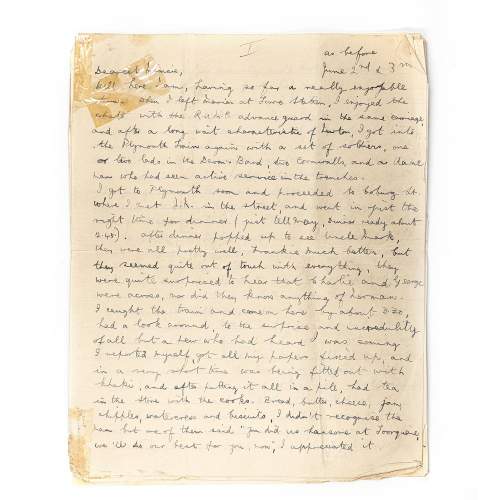 I
as before
June 2nd & 3rd
Dearest
Well here I am, having so far a really enjoyable
time. When I left at Station, I enjoyed the
with the advance guard in the same carriage,
and after a long wait characteristic of, I got into
the Plymouth Train again with a set of soldiers, one
or two lads in the Devon Band, two Cornwalls, and a
man who had seen active service in the trenches.
I got to Plymouth soon and proceeded to
where I met in the street, and went in just the
right time for dinner (just tell May, dinner ready about
2.45). After dinner popped up to see Uncle Mark,
they were all pretty well, Frankie much better, but
they seemed quite out of touch with everything, they
were quite surprised to hear that Charlie and George
were across, nor did they know anything of Norman.
I caught the train and came on here by about
had a look around, to the surprise and incredulity
of all but a few who had heard I was coming
I reported myself, got all my papers fixed up, and
in a very short time was being fitted out with
khaki, and after putting it all in a pile, had tea
in the store with the cooks. Bread, butter, cheese, jam,
watercress and biscuits, I didn't recognise the
men but one of them said "you did us handsome at
we'll do our best for you, now", I appreciated it.